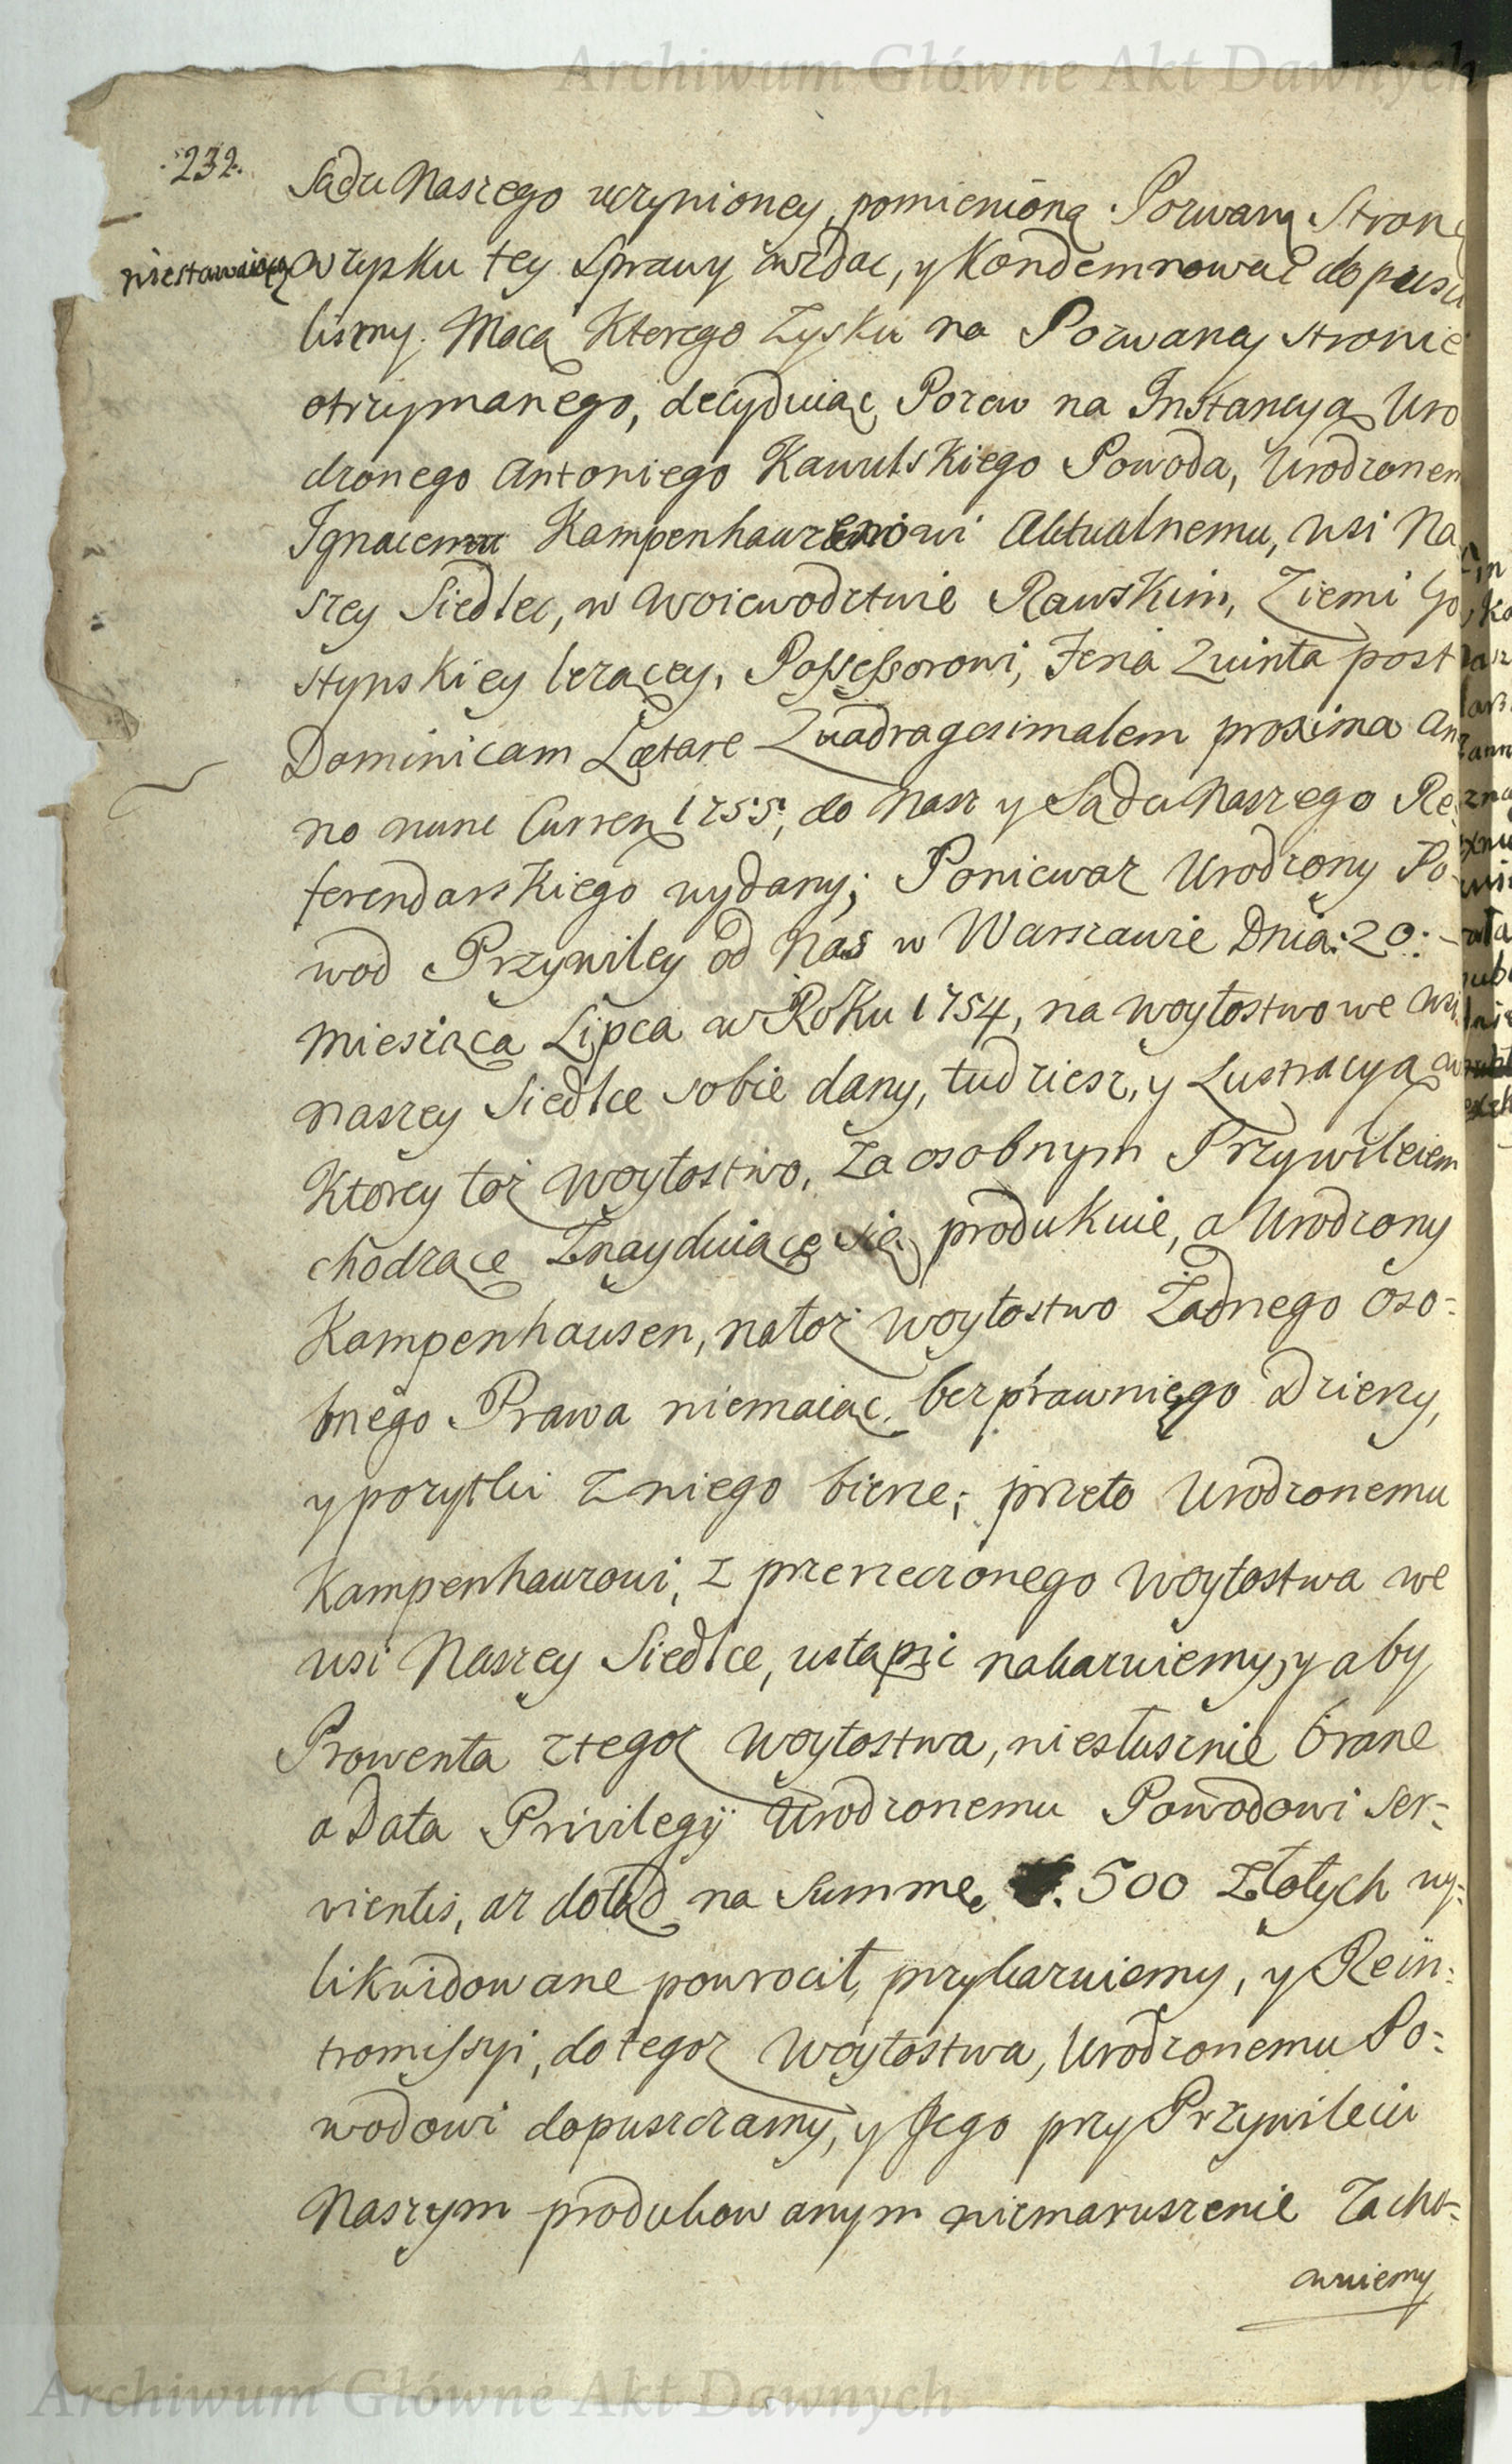 Archiwum Główne Akt Dawnych
232.
Sądu Naszego uczynioney, pomienioną Pozwaną Stronę
niestawaiącą w zysku tey Sprawy wzdać, y Kondemnować dopuści
lismy. Mocą Ktorego Zysku na Pozwaney stronie
otrzymanego, decyduiąc Pozew na Instancyą Uro
dzonego Antoniego Kawulskiego Powoda, Urodzonem
Ignacemu Kampenhauzenowi Aktualnemu, wsi Na
szey Siedlec, w Woiewodztwie Rawskim, Ziemi Go
stynskiey leżącey, Possessorowi, Feria Quinta post
Dominicam Lætare Quadragesimalem proxima An
no nunc Curren 1755, do Nasz y Sądu Naszego Re
ferendarskiego wydany; Poniewasz Urodzony Po-
wod Przywiley od Nas w Warszawie Dnia: 20: -
Miesiąca Lipca w Roku 1754, na Woytostwo we wsi
naszey Siedlce sobie dany, tudziesz, y Lustracyą w
Ktorey toż Woytostwo, za osobnym Przywileiem
chodzące Znayduiące się produkuie, a Urodzony
Kampenhausen, na toż Woytostwo Żadnego Oso-
bnego Prawa niemaiąc, bezprawnie go Dzierzy,
y pozytki z niego bierze; przeto Urodzonemu
Kampenhauzowi, z przerzeczonego Woytostwa we
wsi Naszey Siedlce, ustąpić nakazuiemy, y aby
Prowenta z tegoż Woytostwa, niesłusznie brane
a Data Privilegij Urodzonemu Powodowi ser-
vientis, aż dotąd na Summę 500 Złotych wy-
likwidowane powrocił, przykazuiemy, y Rein-
tromissyi, do tegoż Woytostwa, Urodzonemu Po-
wodowi dopuszczamy, y Jego przy Przywileiu
Naszym produkowanym nienaruszenie Zacho-
wuiemy
Archiwum Główne Akt Dawnych